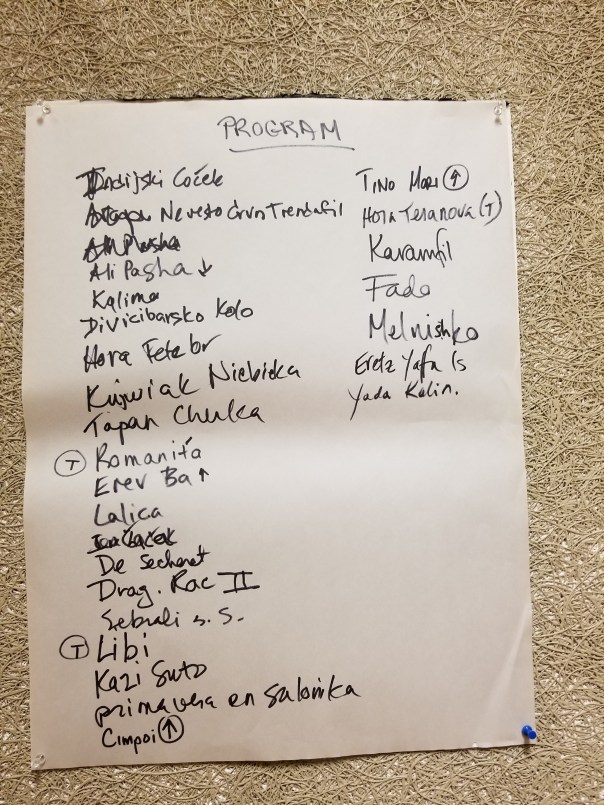 PROGRAM
Indijski Čoček
Nevesto Crven Trendafil
Ali Pasha ↓
Kalima
Divicibarsko Kolo
Hora Fetelor
Kujwiak Niebieka
Tapan Chuka
(T) Romanita
Erev Ba ↑
Lalica
De Secheret
Drag. Rac II
Sebrali s. S.
(T) Libi
Kazi Suto
primavera en Salonika
Cimpoi ↑
Tino Mori ↑
Hora Teranova (T)
Karamfil
Fado
Melnishko
Eretz Yafa Is
Yada Kalin.